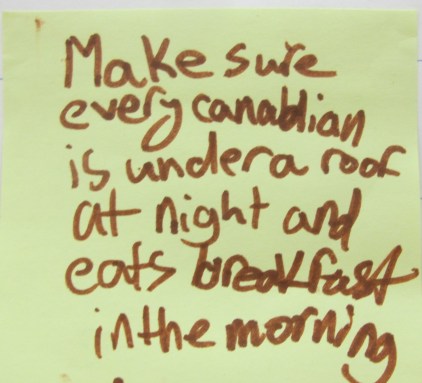 Make sure
every canadian
is under a roof
at night and
eats breakfast
in the morning